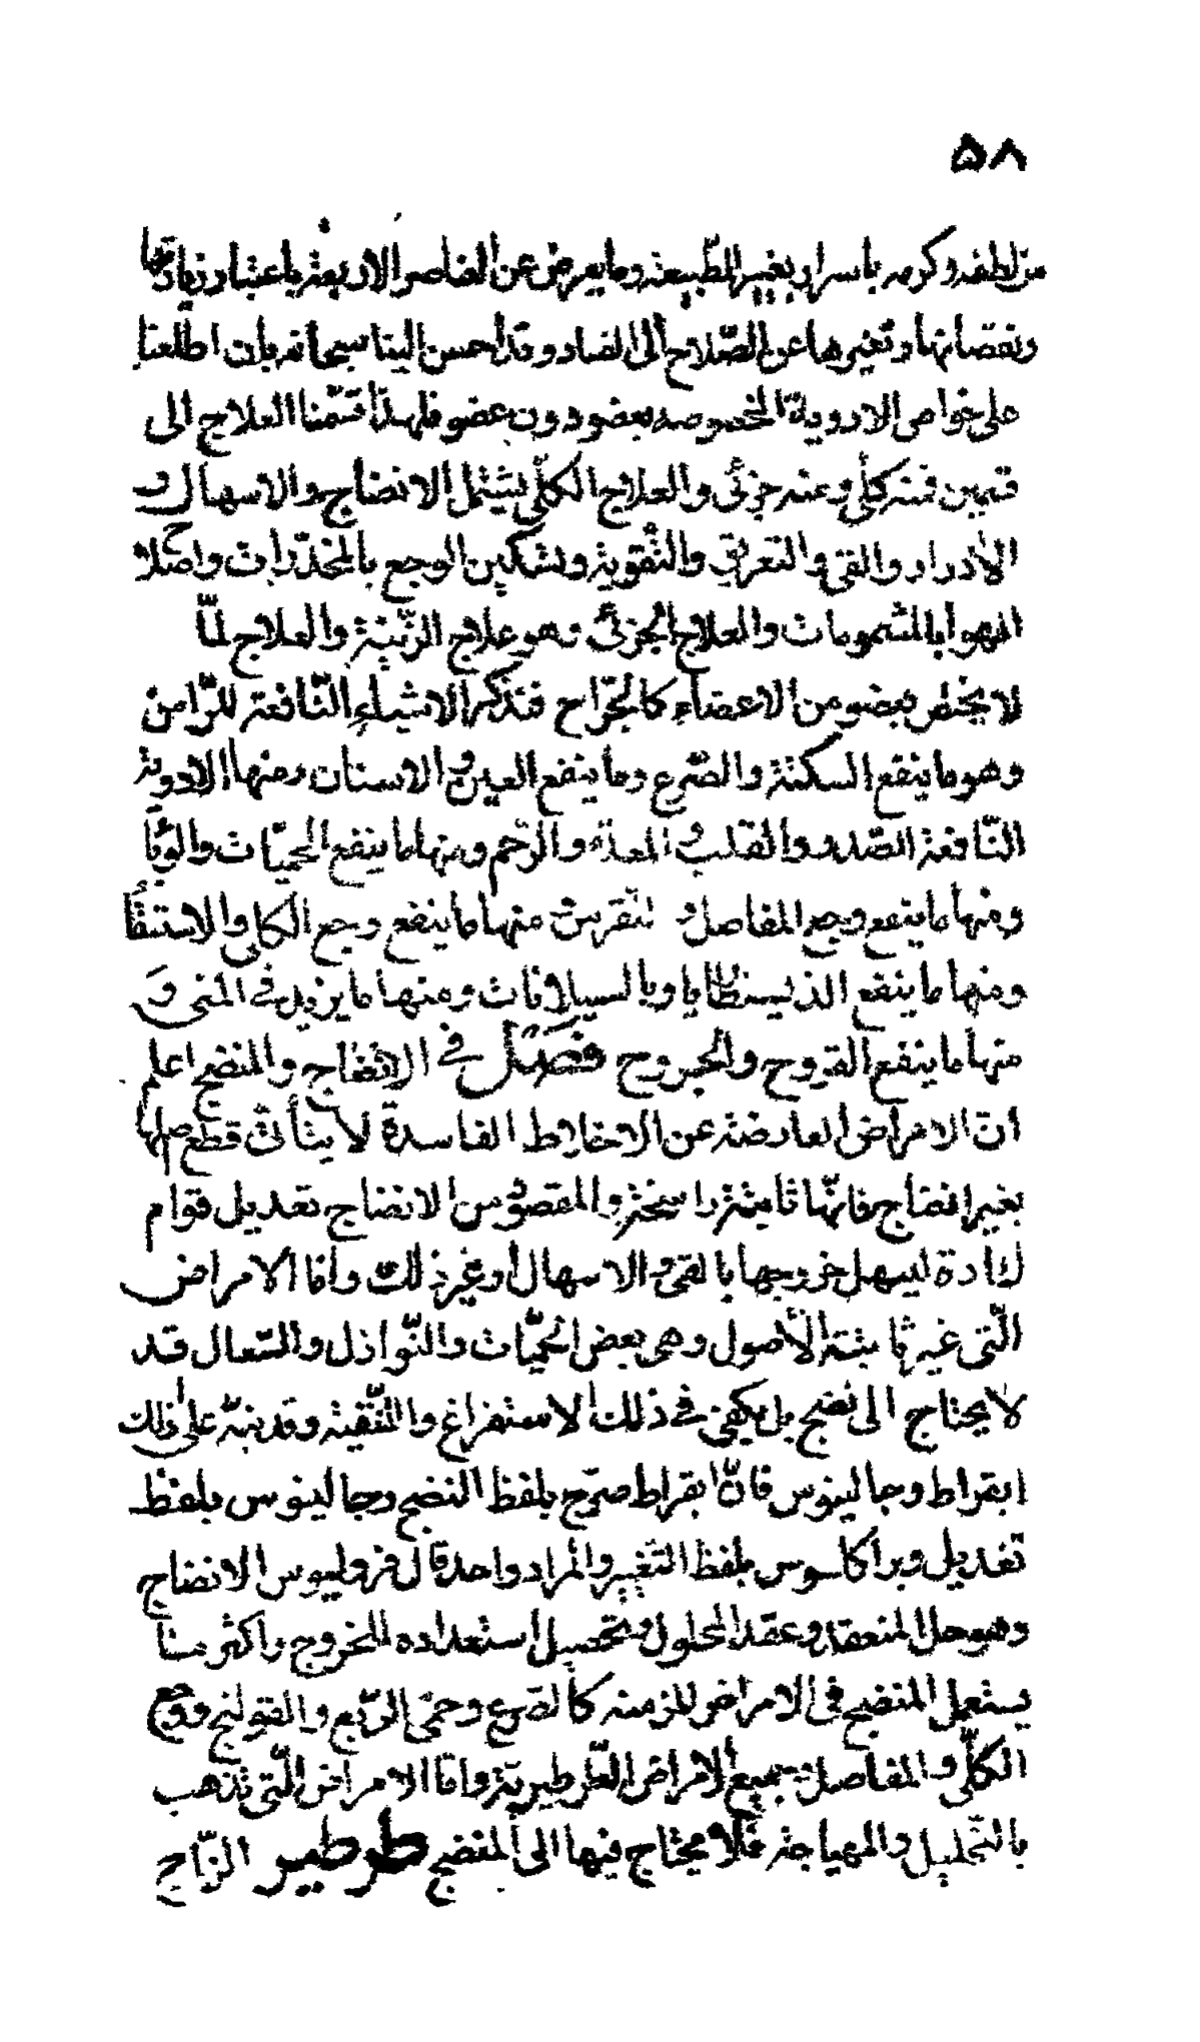 ٥٨
من لطفه وكرمه باسرار بغيير الطّبيعة وما يعرض عن العناصر الاربعة باعتبار زيادتها
ونقصانها وتغيرها عن الصّلاح الى الفساد وقد احسن الينا سبحانه بان اطّلعنا
على خواص الادوية المخصوصه بعضو دون عضو فلهذا قسّمنا العلاج الى
قسمين فمنه كلّى ومنه جزئى والعلاج الكلّى يشتمل الانضاج والاسهال و
الأدرار والقى والتعريق والتّقوية وتسكين الوجع بالمخدّرات واصلاح
الهوا بالمشمومات والعلاج الجزئى وهو علاج الزّينة والعلاج لمّا
لا يختص بعضو من الاعضاء كالجرّاح فنذكر الاشياء النّافعة للرّاس
وهو ما ينفع السكتة والصّرع وما ينفع العين والاسنان ومنها الادوية
النّافعة الصّدر والقلب و المعدة والرّحم ومنها ما ينفع الحميّات والوبا
ومنها ما ينفع وجع المفاصل و النقرس منها ما ينفع وجع الكلى والاستسقا
ومنها ما ينفع الذيسنطايا وبالسيلانات ومنها ما يزيد فى المنى و
منها ما ينفع القروح والجروح فصل فى الانضاج والمنضج اعلم
انّ الامراض العارضة عن الاخلاط الفاسدة لا يتأتى قطع اصلها
بغير انضاج فانّها ثابتة راسخة والمقصود من الانضاج تعديل قوام
المادة ليسهل خروجها بالقى والاسهال أو غير ذلك وامّا الامراض
الّتى غير ثابتة الأصول وهى بعض الحميّات والنّوازل والسّعال قد
لا يحتاج الى نضج بل يكفى فى ذلك الاستفراغ والتّنقية وقد نبّه على ذلك
ابقراط وجالينوس فانّ ابقراط صرّح بلفظ النضج وجالينوس بلفظ
تعديل وبراكلسوس بلفظ التّغيير والمراد واحد قال قروليوس الانضاج
وهو حل المنعقد وعقد المحلول وتحصيل استعداده للخروج واكثر منا
يستعمل المنضج فى الامراض المزمنه كالصّرع وحمّى الرّبع والقولنج ووجع
الكلّى والمفاصل وجميع الامراض الطّرطيرية وامّا الامراض الّتى تذهب
بالتّحليل والمهياجة فلا يحتاج فيها الى المنضج طرطير الزّاج